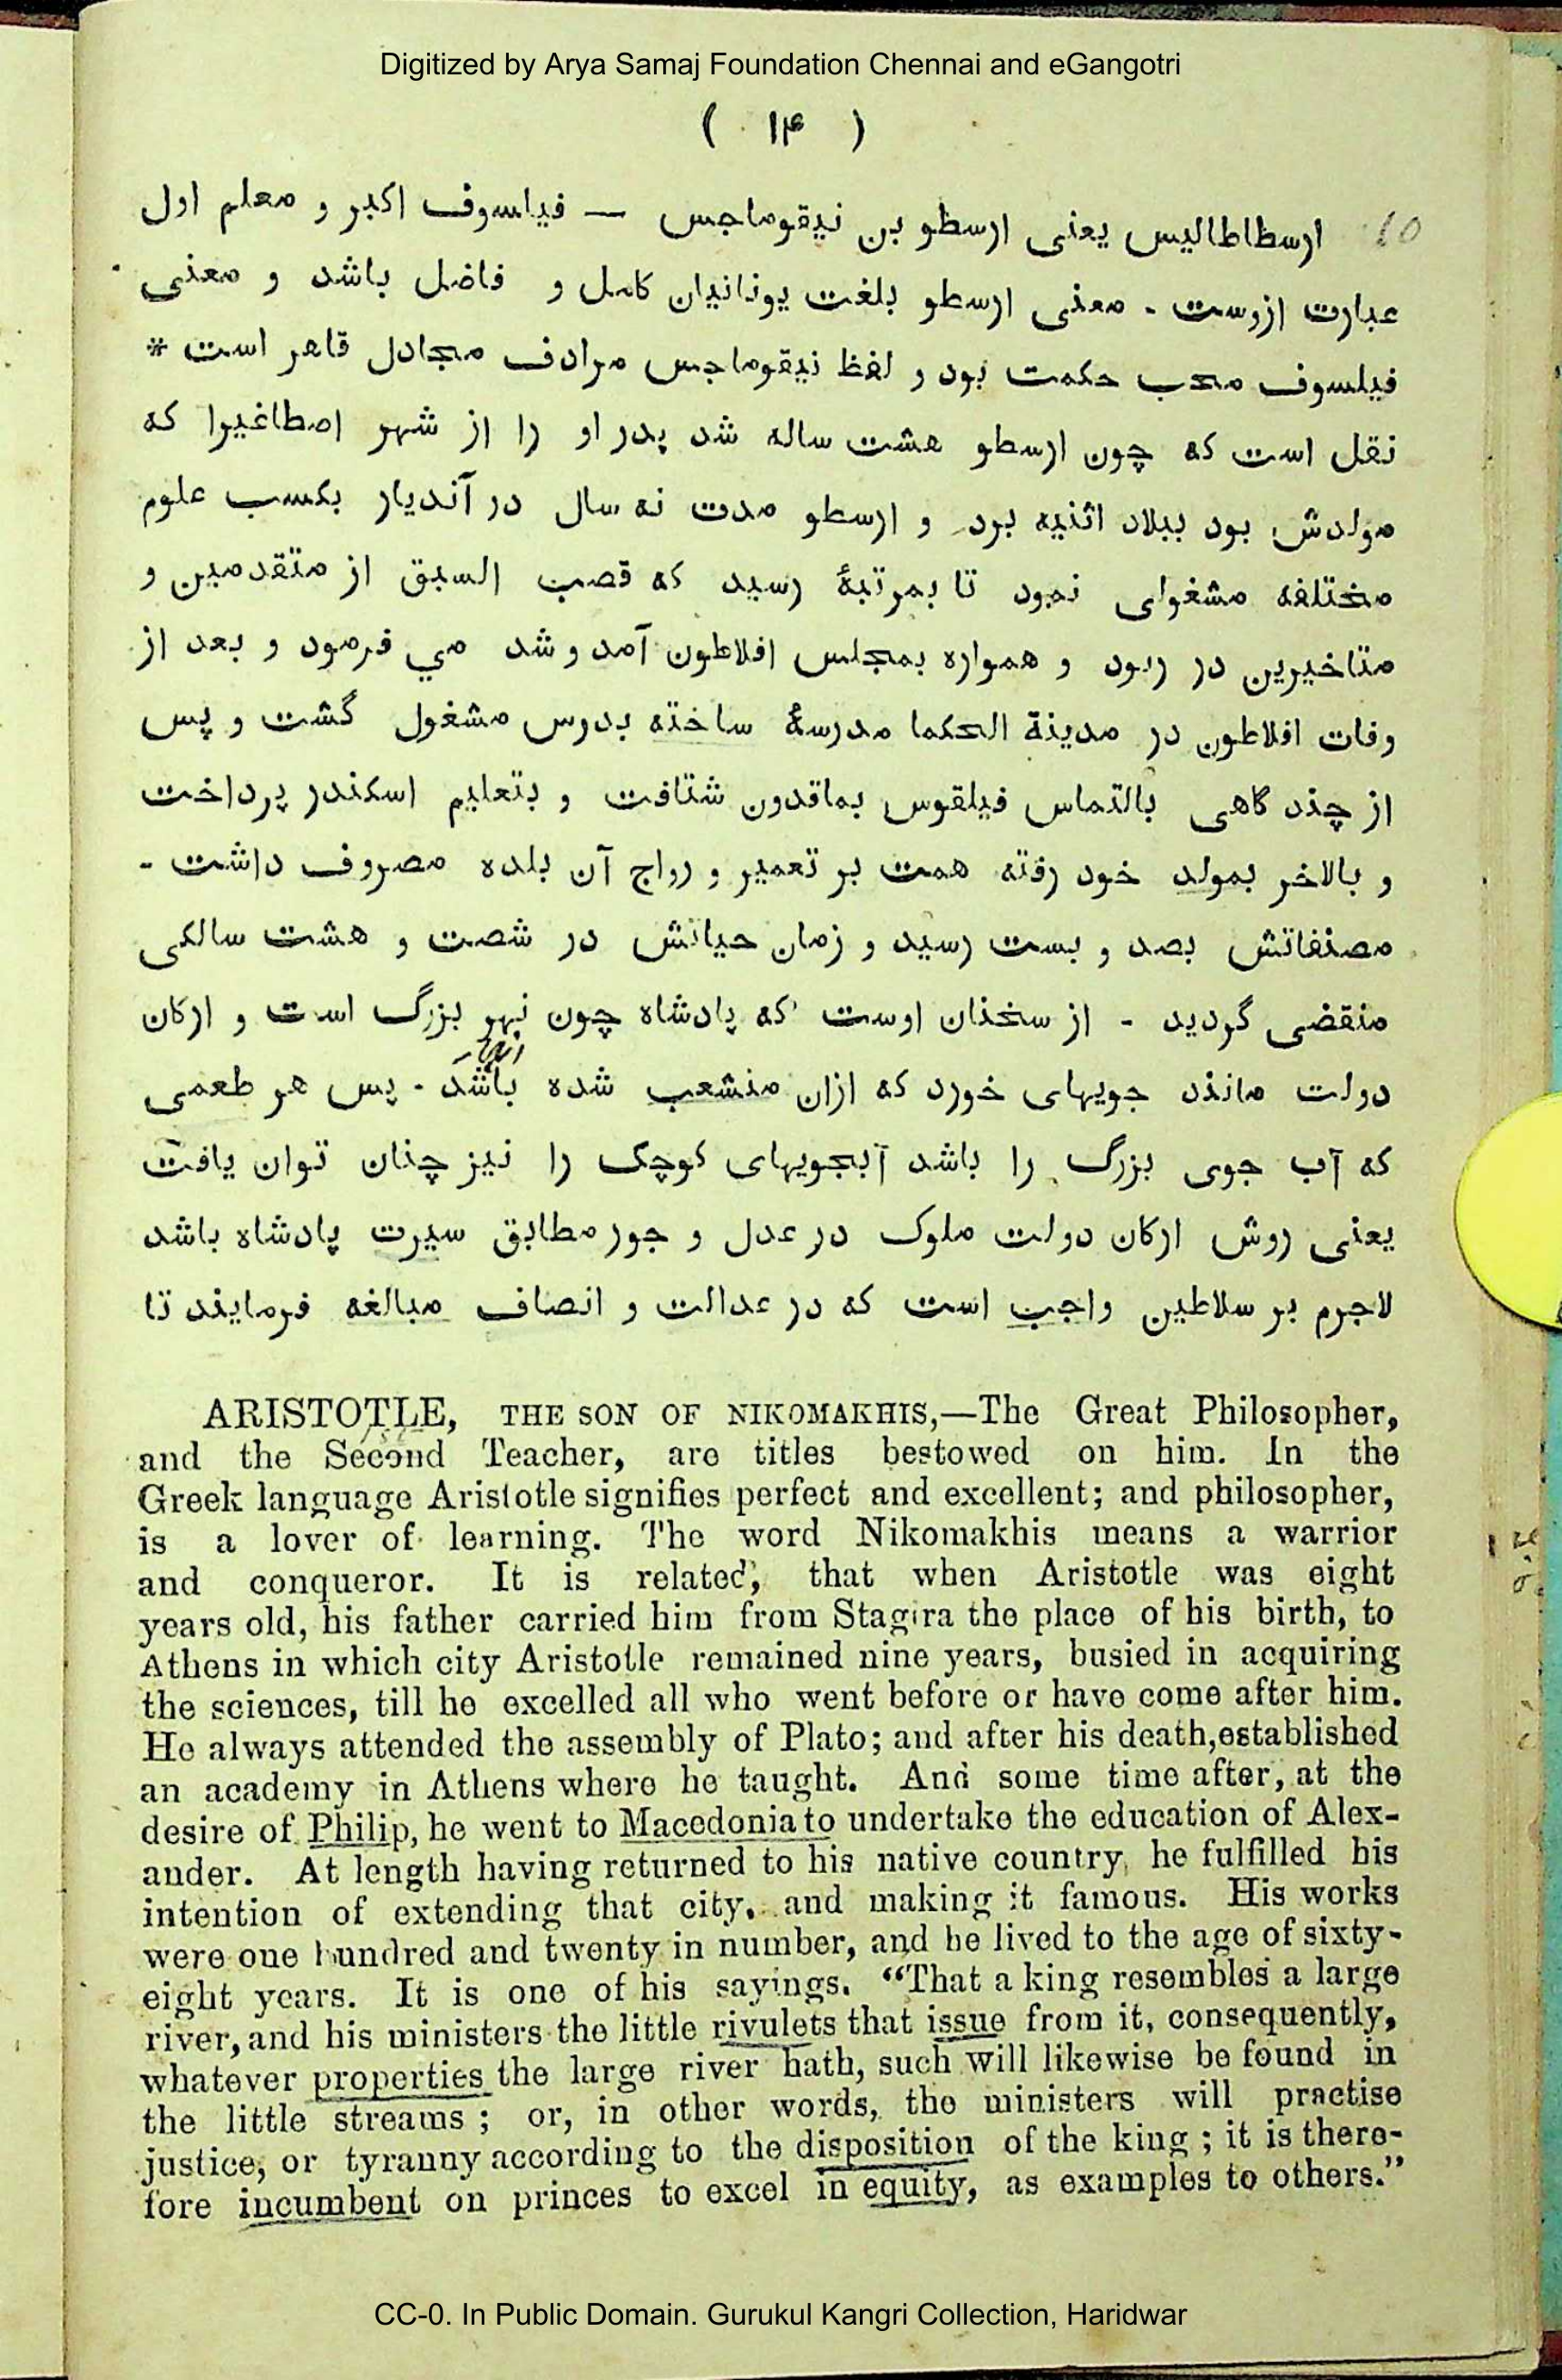 Digitized by Arya Samaj Foundation Chennai and eGangotri
( ۱۴ )
ارسطاطالیس یعنی ارسطو بن نیقوماجس — فیلسوف اکبر و معلم اول
عبارت ازوست - معنی ارسطو بلغت یونانیان کامل و فاضل باشد و معنی
فیلسوف محب حکمت بود و لفظ نیقوماجس مرادف مجادل قاهر است *
نقل است که چون ارسطو هشت ساله شد پدر او را از شهر اصطاغیرا که
مولدش بود ببلاد اثنیه برد و ارسطو مدت نه سال در آندیار بکسب علوم
مختلفه مشغولی نمود تا بمرتبهٔ رسید که قصب السبق از متقدمین و
متاخیرین در ربود و همواره بمجلس افلاطون آمد و شد می فرمود و بعد از
وفات افلاطون در مدینة الحکما مدرسهٔ ساخته بدرس مشغول گشت و پس
از چند گاهی بالتماس فیلقوس بماقدون شتافت و بتعلیم اسکندر پرداخت
و بالاخر بمولد خود رفته همت بر تعمیر و رواج آن بلده مصروف داشت -
مصنفاتش بصد و بست رسید و زمان حیاتش در شصت و هشت سالکی
منقضی گردید - از سخنان اوست که پادشاه چون نهر بزرگ است و ارکان
دولت مانند جویهای خورد که ازان منشعب شده باشد - پس هر طعمی
که آب جوی بزرگ را باشد آبجویهای کوچک را نیز چنان توان یافت
یعنی روش ارکان دولت ملوک در عدل و جور مطابق سیرت پادشاه باشد
لاجرم بر سلاطین واجب است که در عدالت و انصاف مبالغه فرمایند تا
ARISTOTLE, THE SON OF NIKOMAKHIS,—The Great Philosopher,
and the Second Teacher, are titles bestowed on him. In the
Greek language Aristotle signifies perfect and excellent; and philosopher,
is a lover of learning. The word Nikomakhis means a warrior
and conqueror. It is related, that when Aristotle was eight
years old, his father carried him from Stagira the place of his birth, to
Athens in which city Aristotle remained nine years, busied in acquiring
the sciences, till he excelled all who went before or have come after him.
He always attended the assembly of Plato; and after his death,established
an academy in Athens where he taught. And some time after, at the
desire of Philip, he went to Macedonia to undertake the education of Alex-
ander. At length having returned to his native country, he fulfilled his
intention of extending that city, and making it famous. His works
were one hundred and twenty in number, and he lived to the age of sixty-
eight years. It is one of his sayings. “That a king resembles a large
river, and his ministers the little rivulets that issue from it, consequently,
whatever properties the large river hath, such will likewise be found in
the little streams ; or, in other words, the ministers will practise
justice, or tyranny according to the disposition of the king ; it is there-
fore incumbent on princes to excel in equity, as examples to others.”
CC-0. In Public Domain. Gurukul Kangri Collection, Haridwar